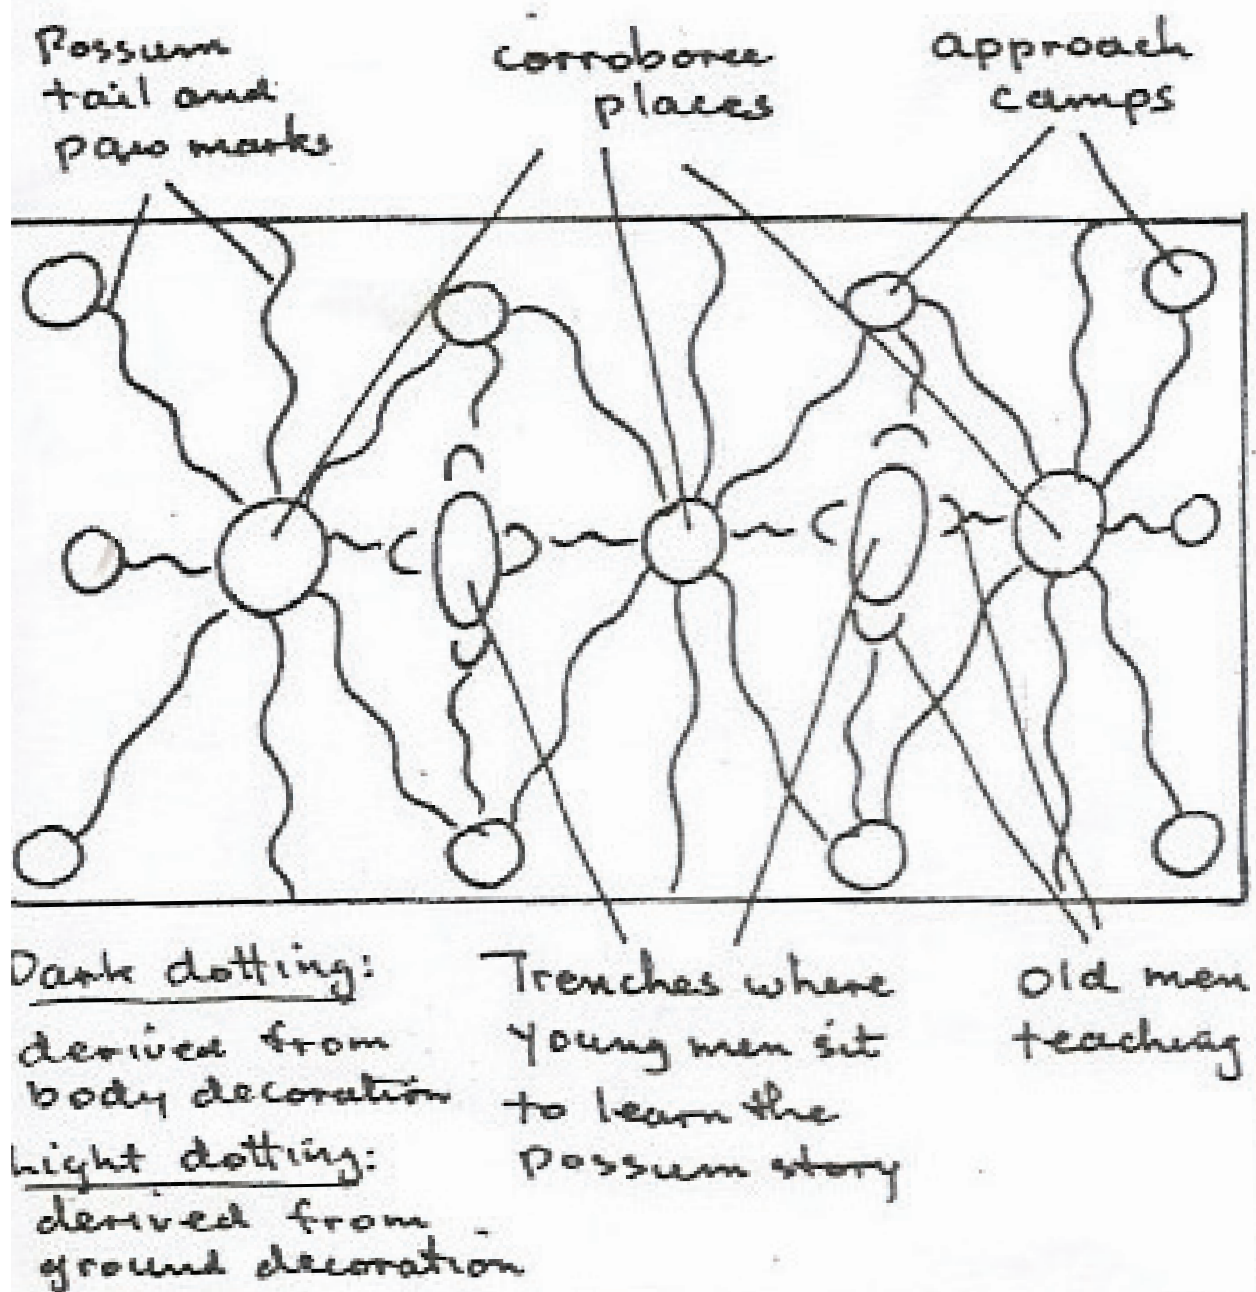 Possum
tail and
paw marks
corroboree
places
approach
camps
Dark dotting:
derived from
body decoration
Light dotting:
derived from
ground decoration
Trenches where
young men sit
to learn the
Possum story
old men
teaching